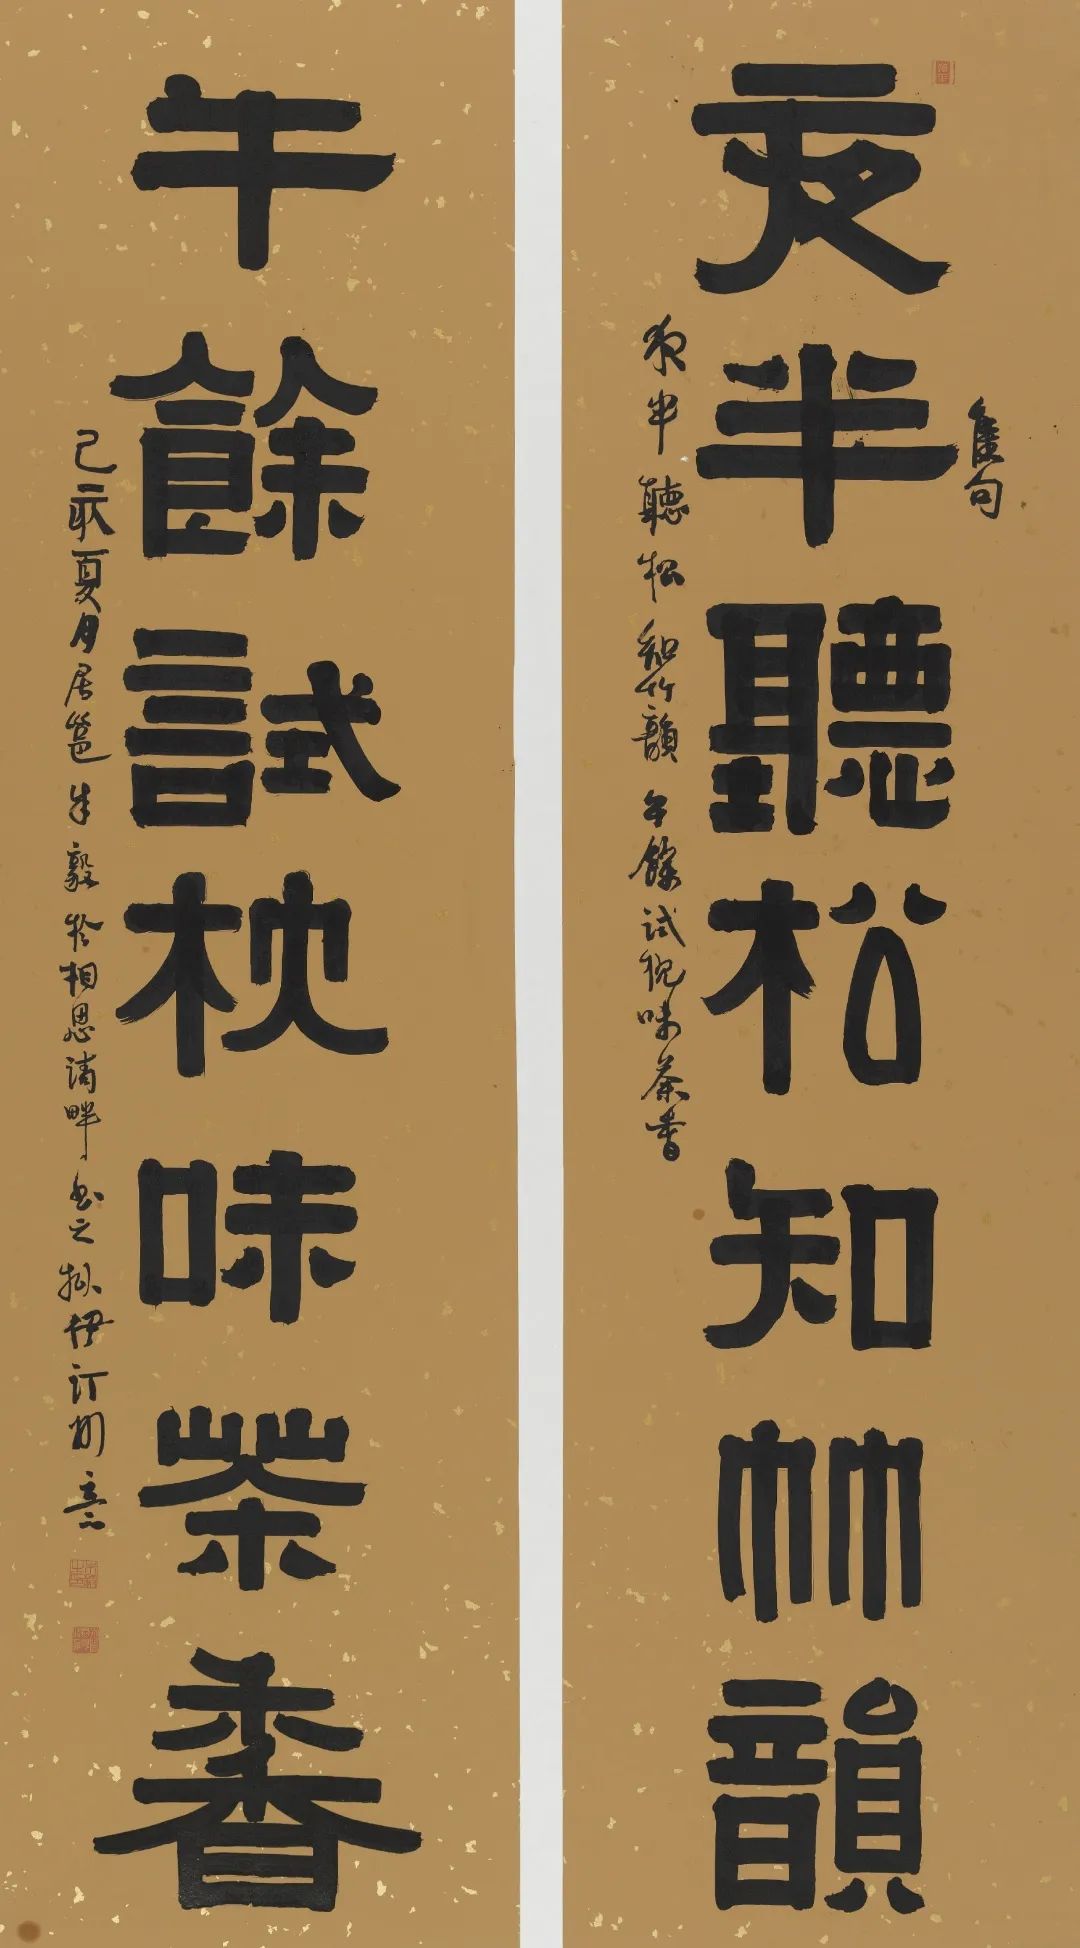 集句
夜半聽松知竹韻
夜半聽松知竹韻 午餘试枕味茶香
午餘試枕味茶香
己亥夏月居邕朱毅於相思湖畔书之拟伊汀州意